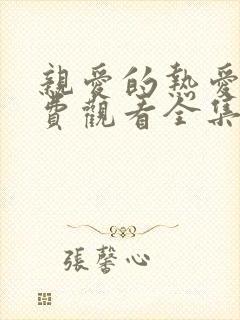 親愛的熱愛
費觀看全集
張馨心